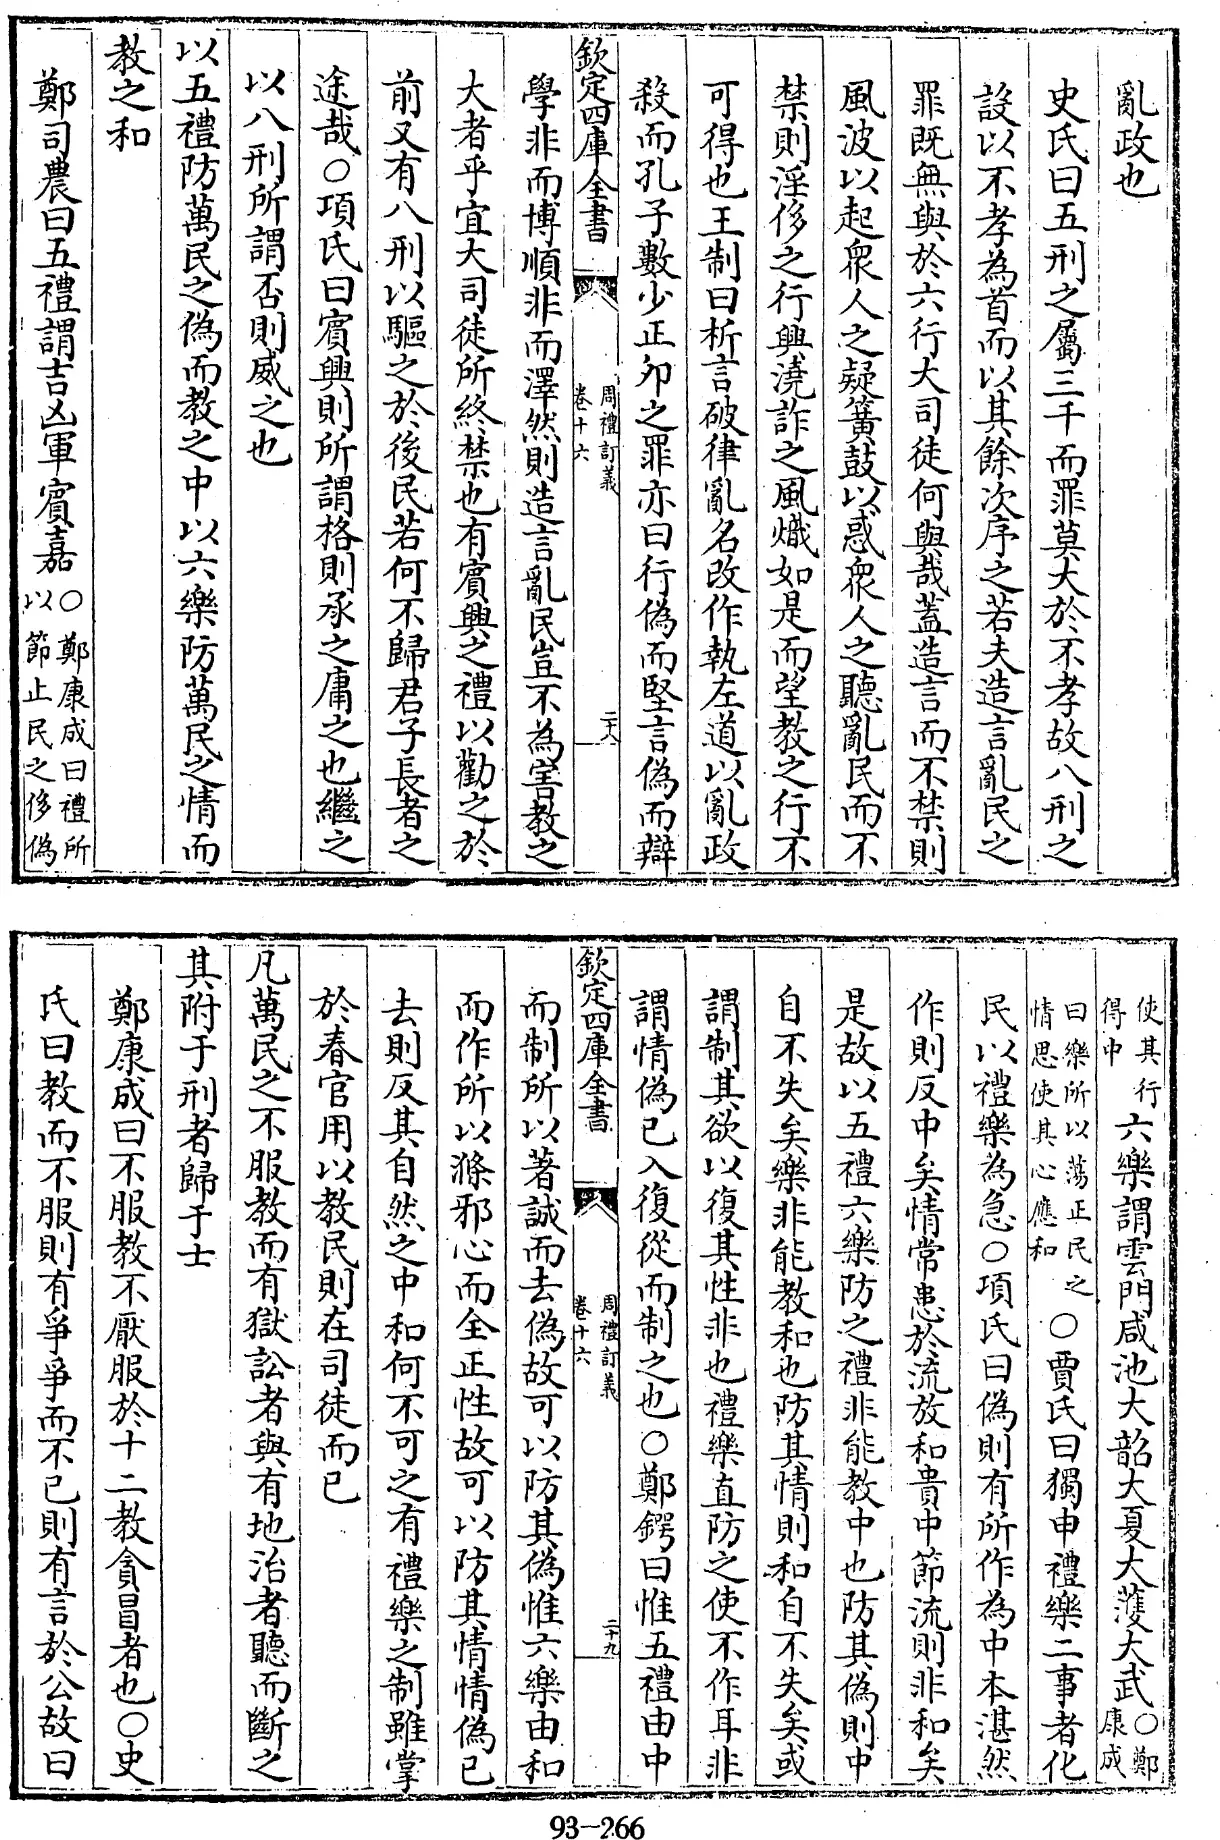 亂政也
史氏曰五刑之屬三千而罪莫大於不孝故八刑之
設以不孝為首而以其餘次序之若夫造言亂民之
罪既無與於六行大司徒何與哉蓋造言而不禁則
風波以起衆人之疑簧鼓以惑衆人之聽亂民而不
禁則淫侈之行興澆詐之風熾如是而望教之行不
可得也王制曰析言破律亂名改作執左道以亂政
殺而孔子數少正卯之罪亦曰行偽而堅言偽而辯
欽定四庫全書
周禮訂義
卷十六
二十八
學非而博順非而澤然則造言亂民豈不為害教之
大者乎宜大司徒所終禁也有賓興之禮以勸之於
前又有八刑以驅之於後民若何不歸君子長者之
途哉○項氏曰賓興則所謂格則承之庸之也繼之
以八刑所謂否則威之也
以五禮防萬民之偽而教之中以六樂防萬民之情而
教之和
鄭司農曰五禮謂吉凶軍賓嘉○鄭康成曰禮所
以節止民之侈偽
使其行
得中
六樂謂雲門咸池大韶大夏大濩大武○鄭
康成
曰樂所以蕩正民之
情思使其心應和
○賈氏曰獨申禮樂二事者化
民以禮樂為急○項氏曰偽則有所作為中本湛然
作則反中矣情常患於流放和貴中節流則非和矣
是故以五禮六樂防之禮非能教中也防其偽則中
自不失矣樂非能教和也防其情則和自不失矣或
謂制其欲以復其性非也禮樂直防之使不作耳非
謂情偽已入復從而制之也○鄭鍔曰惟五禮由中
欽定四庫全書
周禮訂義
卷十六
二十九
而制所以著誠而去偽故可以防其偽惟六樂由和
而作所以滌邪心而全正性故可以防其情情偽已
去則反其自然之中和何不可之有禮樂之制雖掌
於春官用以教民則在司徒而已
凡萬民之不服教而有獄訟者與有地治者聽而斷之
其附于刑者歸于士
鄭康成曰不服教不厭服於十二教貪冒者也○史
氏曰教而不服則有爭爭而不已則有言於公故曰
93-266